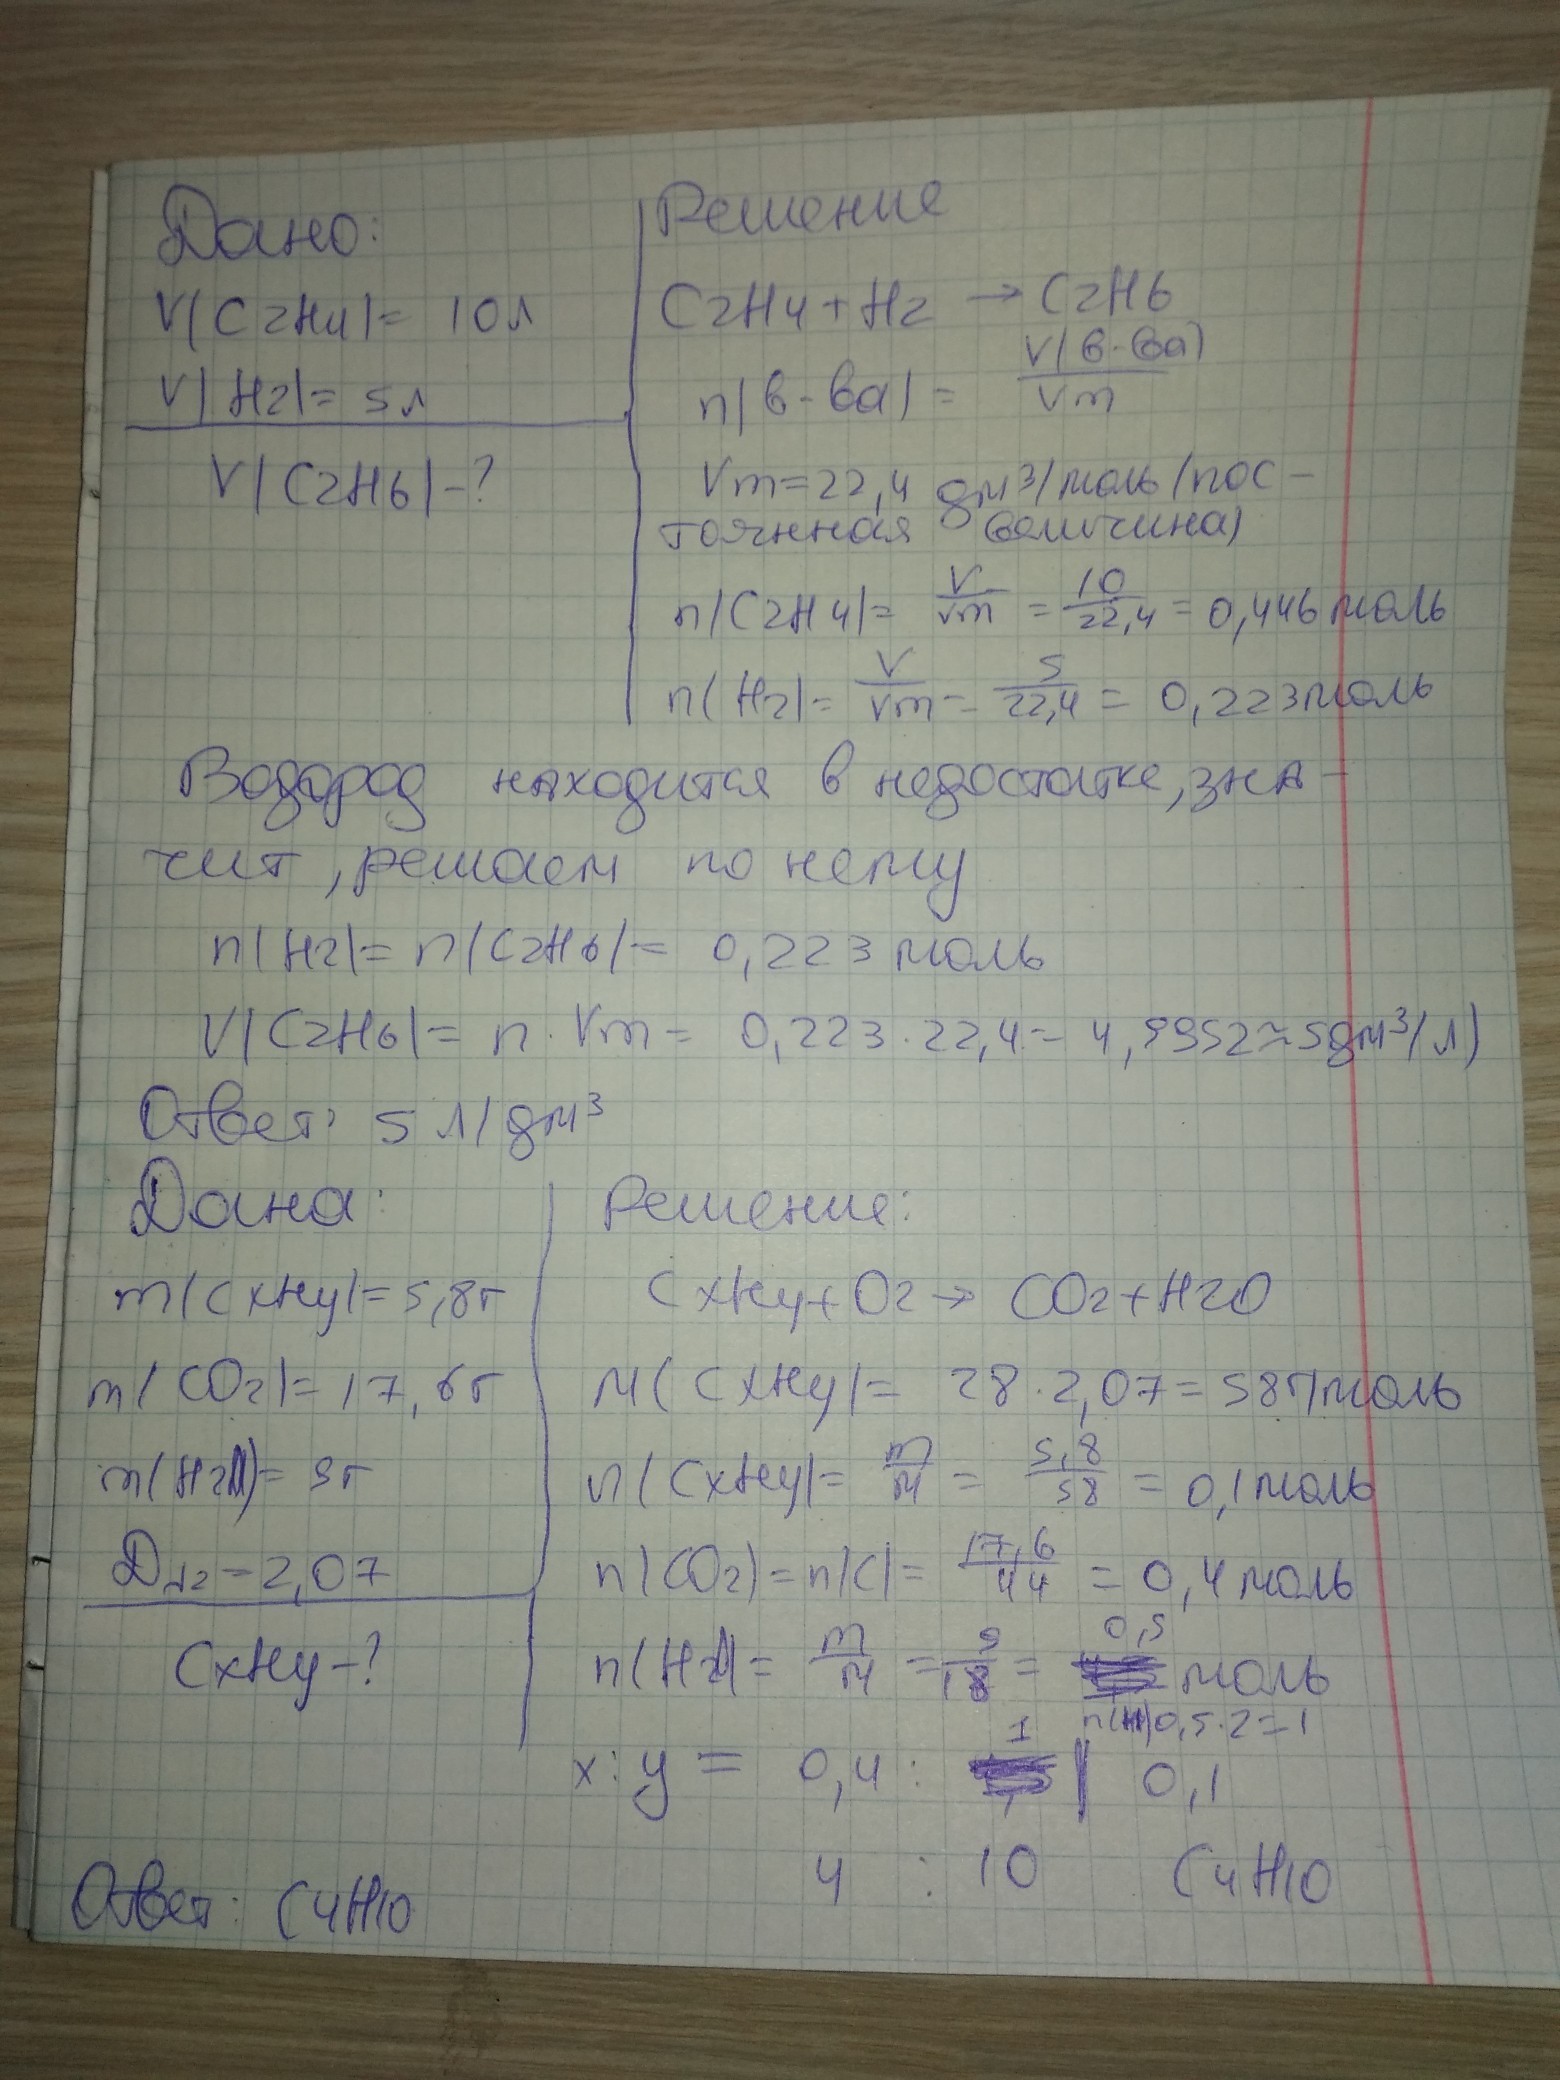 Дано:
V(C2H4)= 10л
V(H2)= 5л
V(C2H6)-?
Решение
C2H4+H2 → C2H6
n(в-ва) = V(в-ва)/Vm
Vm=22,4 дм³/моль (пос-
тоянная величина)
n(C2H4)= V/Vm = 10/22,4 = 0,446 моль
n(H2)= V/Vm = 5/22,4 = 0,223 моль
Водород находится в недостатке, зна-
чит, решаем по нему
n(H2)= n(C2H6)= 0,223 моль
V(C2H6)= n · Vm = 0,223 · 22,4 = 4,9952≈5дм³(л)
Ответ: 5 л/дм³
Дана:
m(CxHy)=5,8г
m(CO2)=17,6г
m(H2O)= 9г
DN2=2,07
CxHy-?
Решение:
CxHy+O2→ CO2+H2O
M(CxHy)= 28·2,07=58г/моль
n(CxHy)= m/M = 5,8/58 = 0,1моль
n(CO2)=n(C)= 17,6/44 = 0,4моль
n(H2O)= m/M = 9/18 = 0,5 моль
n(H)0,5·2=1
x:y = 0,4 : 1 | 0,1
4 : 10 C4H10
Ответ: C4H10